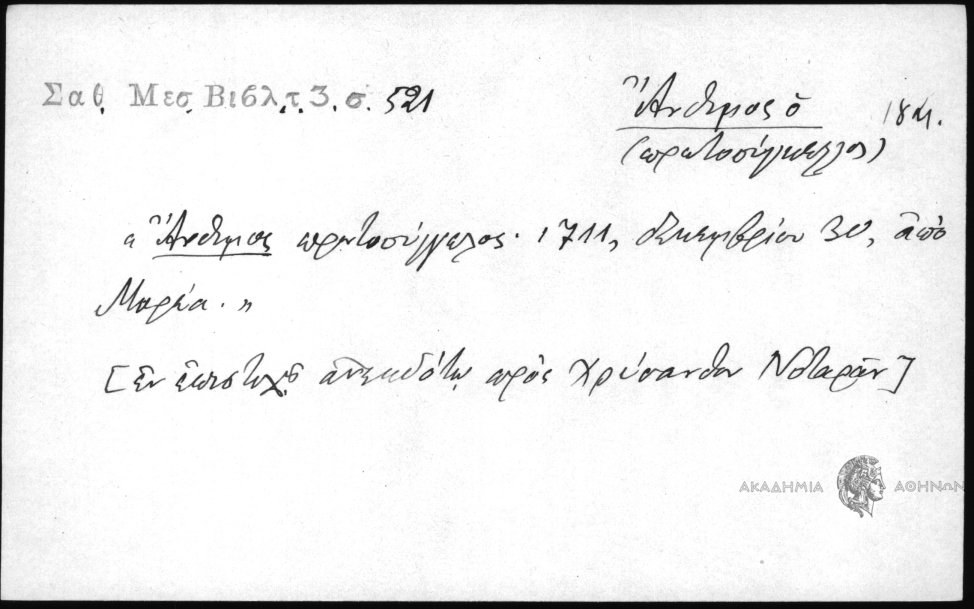 Σαθ. Μεσ. Βιβλ. τ. 3. σ. 521
Ἄνθιμος ὁ
(πρωτοσύγκελλος)
« Ἄνθιμος πρωτοσύγγελος. 1711, Δεκεμβρίου 30, ἀπὸ
Μορέα. »
[Ἐν ἐπιστολῇ ἀνεκδότῳ πρὸς Χρύσανθον Νοταρᾶν]
ΑΚΑΔΗΜΙΑ ΑΘΗΝΩΝ